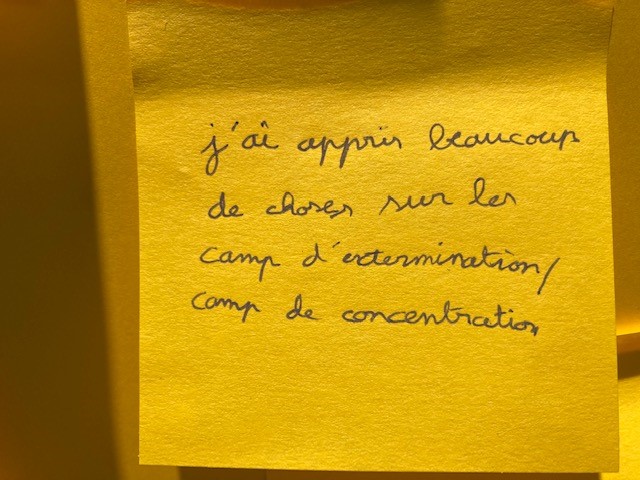 j'ai appris beaucoup
de choses sur les
camp d'extermination/
camp de concentration